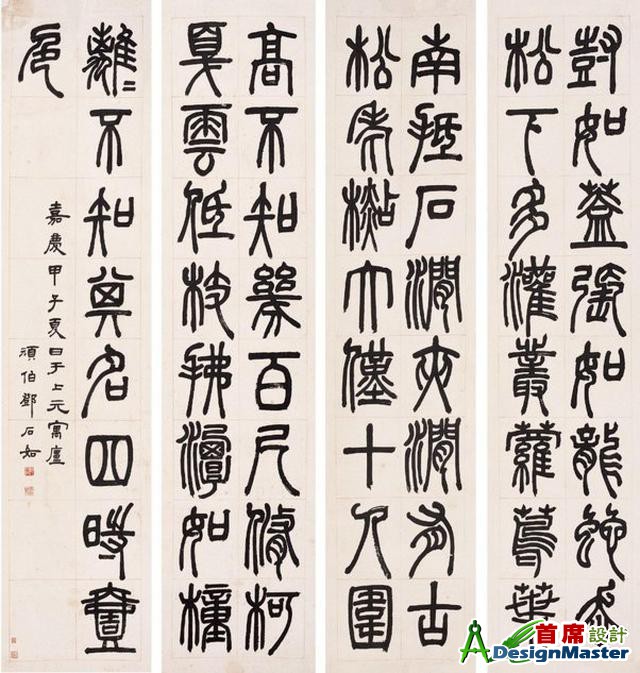 尌如蓋張如龍蛇走
松下多灌叢蘿蔦葉
南抵石澗夾澗有古
松老檆大僅十人圍
高不知幾百尺修柯
戛雲低枝拂潭如橦
離〻不知其名四時壹
色
嘉慶甲子夏日于上元寓廬
頑伯鄧石如
首席設計
DesignMaster